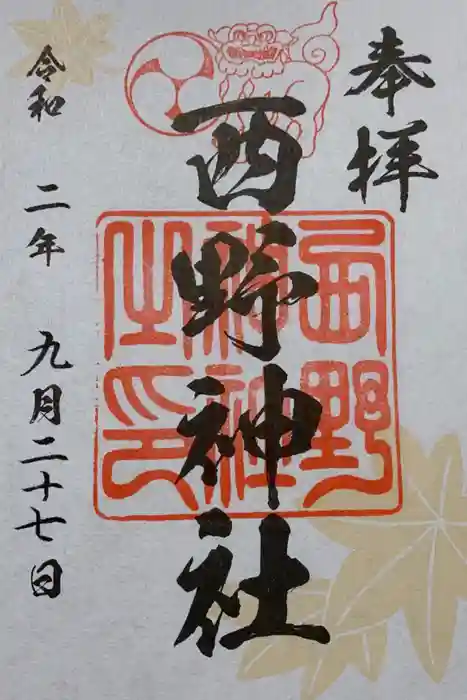 奉拝
西野神社
西野神社之印
令和二年九月二十七日